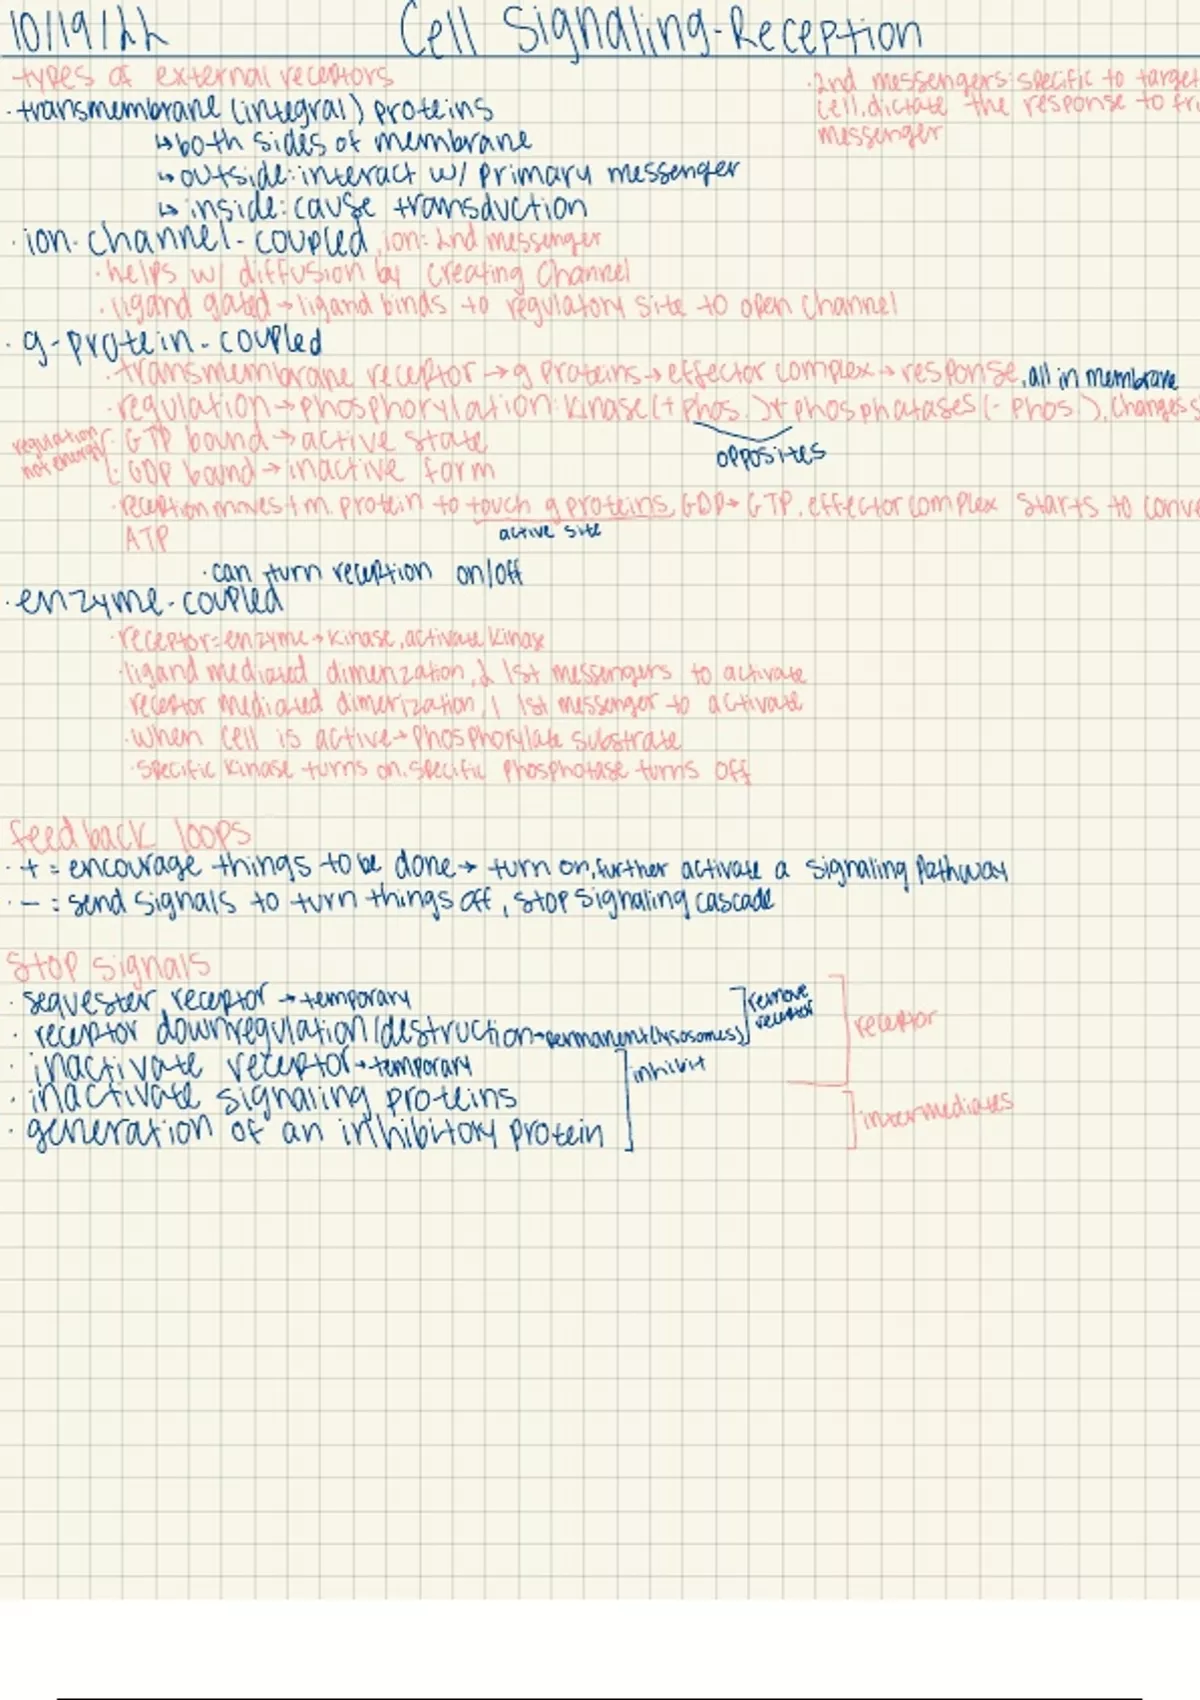 10/19/22 Cell Signaling-Reception
types of external receptors
· transmembrane (integral) proteins
↳ both sides of membrane
↳ outside: interact w/ primary messenger
↳ inside: cause transduction
· 2nd messengers: specific to target
cell, dictate the response to
messenger
· ion-channel-coupled, ion: 2nd messenger
· helps w/ diffusion by creating channel
· ligand gated → ligand binds to regulatory site to open channel
· g-protein-coupled
· transmembrane receptor → g proteins → effector complex → response, all in membrane
· regulation → phosphorylation: kinase (+ phos.) + phosphatases (- phos.), changes
opposites
regulation
not energy
· GTP bound → active state
· GDP bound → inactive form
· reception moves t.m. protein to touch g proteins, GDP → GTP, effector complex starts to
active site
ATP
· can turn reception on/off
· enzyme-coupled
· receptor = enzyme → kinase, activate kinase
· ligand mediated dimerization, 2 1st messengers to activate
receptor mediated dimerization, 1 1st messenger to activate
· when cell is active → phosphorylate substrate
· specific kinase turns on, specific phosphotase turns off
feedback loops
· + = encourage things to be done → turn on, further activate a signaling pathway
· - : send signals to turn things off, stop signaling cascade
stop signals
· sequester receptor → temporary
· receptor downregulation/destruction → permanent (lysosomes)
remove
receptor
receptor
· inactivate receptor → temporary
inhibit
· inactivate signaling proteins
intermediates
· generation of an inhibitory protein